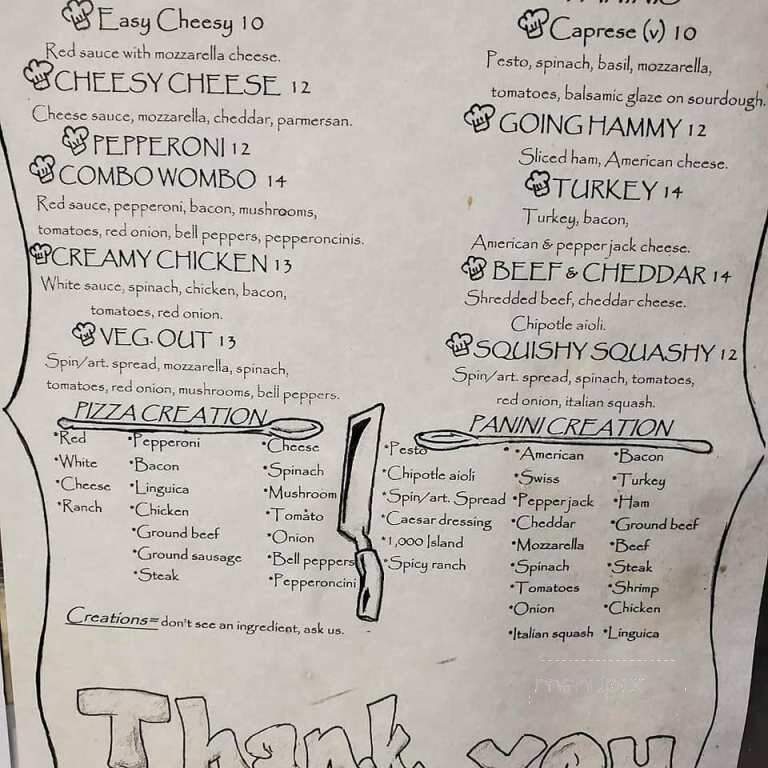 Easy Cheesy 10
Red sauce with mozzarella cheese.
CHEESY CHEESE 12
Cheese sauce, mozzarella, cheddar, parmersan.
PEPPERONI 12
COMBO WOMBO 14
Red sauce, pepperoni, bacon, mushrooms,
tomatoes, red onion, bell peppers, pepperoncinis.
CREAMY CHICKEN 13
White sauce, spinach, chicken, bacon,
tomatoes, red onion.
VEG. OUT 13
Spin/art. spread, mozzarella, spinach,
tomatoes, red onion, mushrooms, bell peppers.
PIZZA CREATION
•Red
•White
•Cheese
•Ranch
•Pepperoni
•Bacon
•Linguica
•Chicken
•Ground beef
•Ground sausage
•Steak
•Cheese
•Spinach
•Mushroom
•Tomato
•Onion
•Bell peppers
•Pepperoncini
Creations= don't see an ingredient, ask us.
Caprese (v) 10
Pesto, spinach, basil, mozzarella,
tomatoes, balsamic glaze on sourdough.
GOING HAMMY 12
Sliced ham, American cheese.
TURKEY 14
Turkey, bacon,
American & pepper jack cheese.
BEEF & CHEDDAR 14
Shredded beef, cheddar cheese.
Chipotle aioli.
SQUISHY SQUASHY 12
Spin/art. spread, spinach, tomatoes,
red onion, italian squash.
PANINI CREATION
•Pesto
•Chipotle aioli
•Spin/art. Spread
•Caesar dressing
•1,000 Island
•Spicy ranch
•American
•Swiss
•Pepper jack
•Cheddar
•Mozzarella
•Spinach
•Tomatoes
•Onion
•Italian squash
•Bacon
•Turkey
•Ham
•Ground beef
•Beef
•Steak
•Shrimp
•Chicken
•Linguica
Thank you